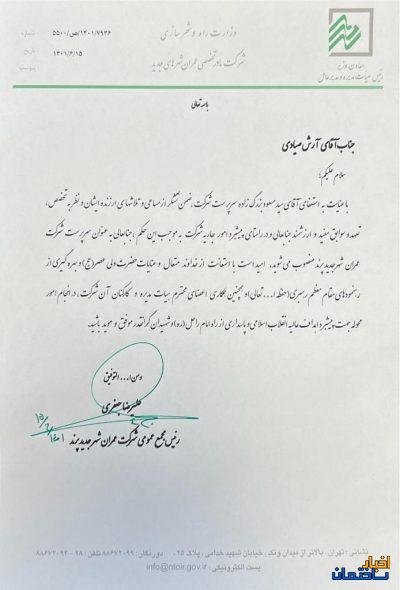 وزارت راه و شهرسازی
شرکت مادر تخصصی عمران شهرهای جدید
معاون وزیر
رئیس هیأت مدیره و مدیرعامل
شماره: ۱۴۰۱/۷۹۳۶/ص/۵۵۰۰
تاریخ: ۱۴۰۱/۶/۱۵
پیوست:
باسمه تعالی
جناب آقای آرش صیادی
سلام علیکم؛
با عنایت به استعفای آقای سید مسعود بزرگ زاده سرپرست شرکت، ضمن تشکر از مساعی و تلاشهای ارزنده ایشان و نظر به تخصص،
تعهد و سوابق مفید و ارزشمند جنابعالی و در راستای پیشبرد امور جاریه شرکت به موجب این حکم، جنابعالی به عنوان سرپرست شرکت
عمران شهر جدید پرند منصوب می شوید. امید است با استعانت از خداوند متعال و عنایات حضرت ولی عصر(عج) و بهره گیری از
رهنمودهای مقام معظم رهبری (حفظه ا... تعالی) و همچنین همکاری اعضای محترم هیات مدیره و کارکنان آن شرکت، در انجام امور
محوله جهت پیشبرد اهداف عالیه انقلاب اسلامی و پاسداری از راه امام راحل (ره) و شهیدان گرانقدر موفق و موید باشید.
و من ا... التوفیق
علیرضا جعفری
رئیس مجمع عمومی شرکت عمران شهر جدید پرند
۱۴۰۱/۶/۱۵
نشانی: تهران، بالاتر از میدان ونک، خیابان شهید خدامی، پلاک ۲۵ دورنگار: ۸۸۶۷۲۰۹۹ تلفن: ۹۸-۸۸۶۷۲۰۹۳
پست الکترونیکی: info@ntoir.gov.ir
اخبار
ساختمان